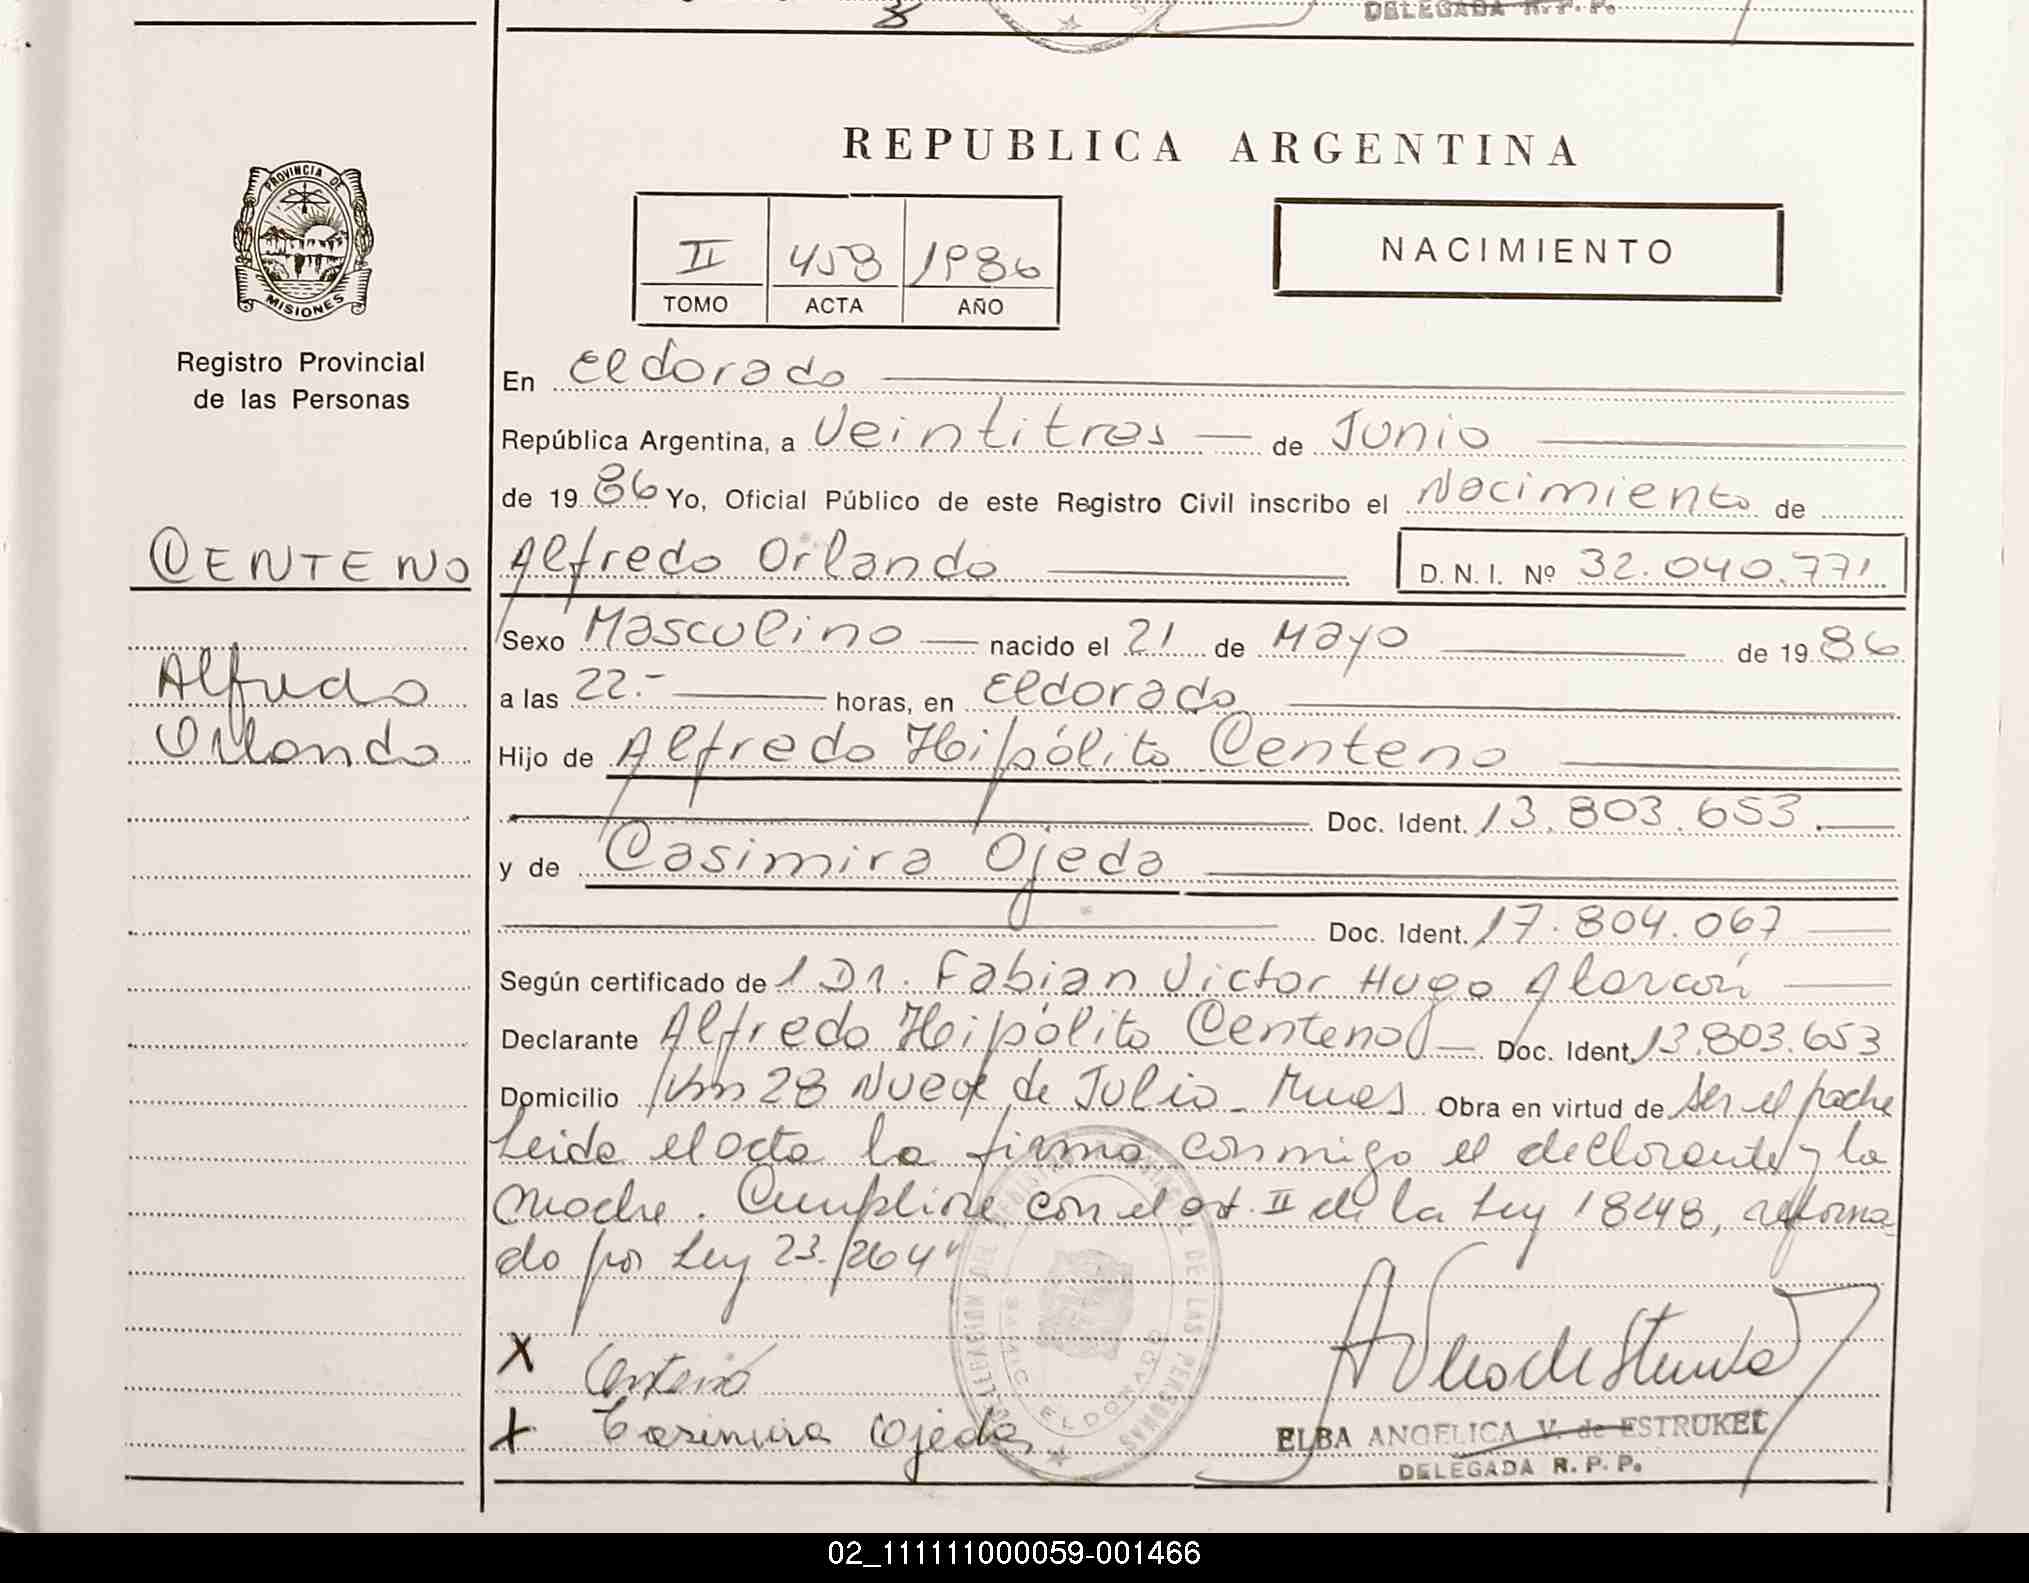 DELEGADA R. P. P.
REPUBLICA ARGENTINA
PROVINCIA DE
MISIONES
Registro Provincial
de las Personas
II 458 1986
TOMO ACTA AÑO
NACIMIENTO
En Eldorado
República Argentina, a Veintitres de Junio
de 19 86 Yo, Oficial Público de este Registro Civil inscribo el Nacimiento de
CENTENO
Alfredo Orlando D.N.I. Nº 32.040.771
Sexo Masculino nacido el 21 de Mayo de 19 86
Alfredo
Orlando
a las 22.- horas, en Eldorado
Hijo de Alfredo Hipólito Centeno
Doc. Ident. 13.803.653.
y de Casimira Ojeda
Doc. Ident. 17.804.067
Según certificado de 1 Dr. Fabian Victor Hugo Alarcón
Declarante Alfredo Hipólito Centeno Doc. Ident. 13.803.653
Domicilio Km 28 Nueve de Julio - Mnes Obra en virtud de ser el padre
Leida el acta la firma conmigo el declarante y la
madre. Cumpliré con el art. II de la Ley 18248, reforma
do por Ley 23.264"
X Centeno
X Casimira Ojeda
DE LAS PERSONAS
ELDORADO
ELBA ANGELICA V. de ESTRUKEL
DELEGADA R. P. P.
02_111111000059-001466